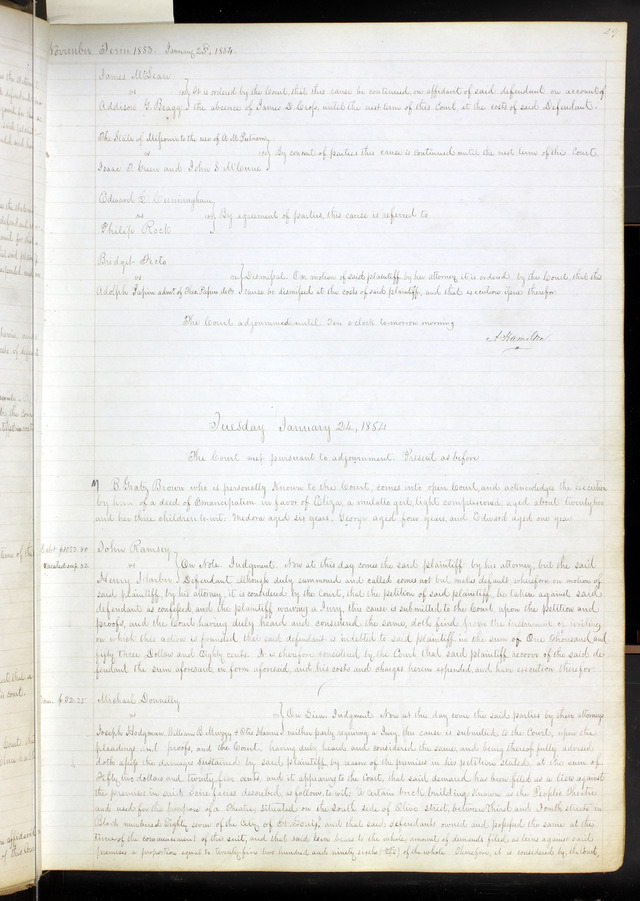 29
November Term 1853. January 23d, 1854.
James McLean
vs
Addison G. Bragg
It is ordered by the Court, that this cause be continued, on affidavit of said defendant on account of
the absence of James D. Cross, until the next term of this Court, at the costs of said Defendant.
The State of Missouri to the use of A. M. Putnam,
vs
By consent of parties this cause is continued until the next term of this Court.
Isaac T. Green and John S. McCune
Edward L. Cunningham,
vs
By agreement of parties, this cause is referred to
Philip Rock
Bridget
vs
Dismissed. On motion of said plaintiff by her attorney it is ordered by the Court, that this
Adolph Papin admr. of Theo. Papin decd. cause be dismissed at the costs of said plaintiff, and that execution issue therefor
The Court adjourned until Ten o'clock to-morrow morning
A. Hamilton
Tuesday January 24, 1854
The Court met pursuant to adjournment. Present as before
B. Gratz Brown who is personally known to the Court, comes into open Court, and acknowledges the execution
by him of a deed of Emancipation in favor of Eliza, a mulatto girl, light complexioned, aged about twenty two
and her three children to wit: Medora aged six years, George aged four years, and Edward aged one year.
Debt $1053.80
John Ramsey
vs
On Note. Judgment. Now at this day comes the said plaintiff by his attorney, but the said
Henry
Defendant although duly summoned and called comes not but makes default wherefore on motion of
said plaintiff, by his attorney, it is considered by the Court, that the petition of said plaintiff, be taken against said
defendant as confessed and the plaintiff waiving a Jury, this cause is submitted to the Court upon the petition and
proofs, and the Court having duly heard and considered the same, doth find from the instrument of writing
on which this action is founded that said defendant is indebted to said plaintiff in the sum of One thousand and
fifty three Dollars and Eighty cents. It is therefore considered by the Court that said plaintiff recover of the said de-
fendant the sum aforesaid, in form aforesaid, and his costs and charges herein expended, and have execution therefor
Dam. $52.25
Michael Donnelly
vs
On Lien. Judgment. Now at this day come the said parties by their attorneys
Joseph Hodgman, William B. &
neither party requiring a Jury, this cause is submitted to the Court, upon the
pleadings and proofs, and the Court, having duly heard and considered the same, and being thereof fully advised
doth assess the damages sustained by said plaintiff by reason of the premises in his petition stated, at the sum of
Fifty two dollars and twenty five cents, and it appearing to the Court, that said demand has been filed as a lien against
the premises in said lien papers described, as follows, to wit: A certain brick building known as the Peoples Theatre
and used for the purpose of a Theatre, situated on the South side of Olive street, between Third and Fourth streets in
Block numbered Eighty seven of the City of St. Louis; and that said defendants owned and possessed the same at the
time of the commencement of this suit, and that said lien bears to the whole amount of demands filed as liens against said
premises a proportion equal to twenty five two hundred and ninety sixths of the whole. Therefore, it is considered by the Court,